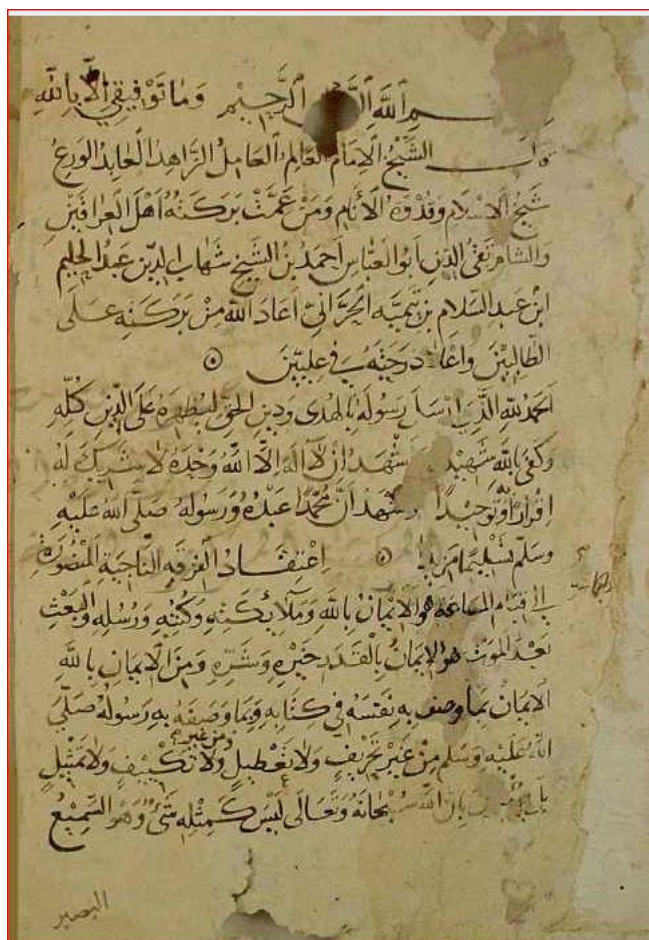 بسم الله الرحمن الرحيم وما توفيقي الا بالله
قال الشيخ الامام العالم العامل الزاهد العابد الورع
شيخ الاسلام وقدوة الانام ومن عمت بركته اهل العراقين
والشام تقي الدين ابو العباس احمد بن الشيخ شهاب الدين عبد الحليم
ابن عبد السلام بن تيمية الحراني اعاد الله من بركته على
الطالبين واعلى درجته في عليين
الحمد لله الذي ارسل رسوله بالهدى ودين الحق ليظهره على الدين كله
وكفى بالله شهيدا واشهد ان لا اله الا الله وحده لا شريك له
اقرارا وتوحيدا واشهد ان محمدا عبده ورسوله صلى الله عليه
وسلم تسليما مزيدا اعتقاد الفرقة الناجية المنصورة
الى قيام الساعة هو الايمان بالله وملائكته وكتبه ورسله والبعث
بعد الموت هو الايمان بالقدر خيره وشره ومن الايمان بالله
الايمان بما وصف به نفسه في كتابه وبما وصفه به رسوله صلى
الله عليه وسلم من غير تحريف ولا تعطيل ومن غير ولا تكييف ولا تمثيل
بل يؤمنون بان الله سبحانه وتعالى ليس كمثله شيء وهو السميع
البصير